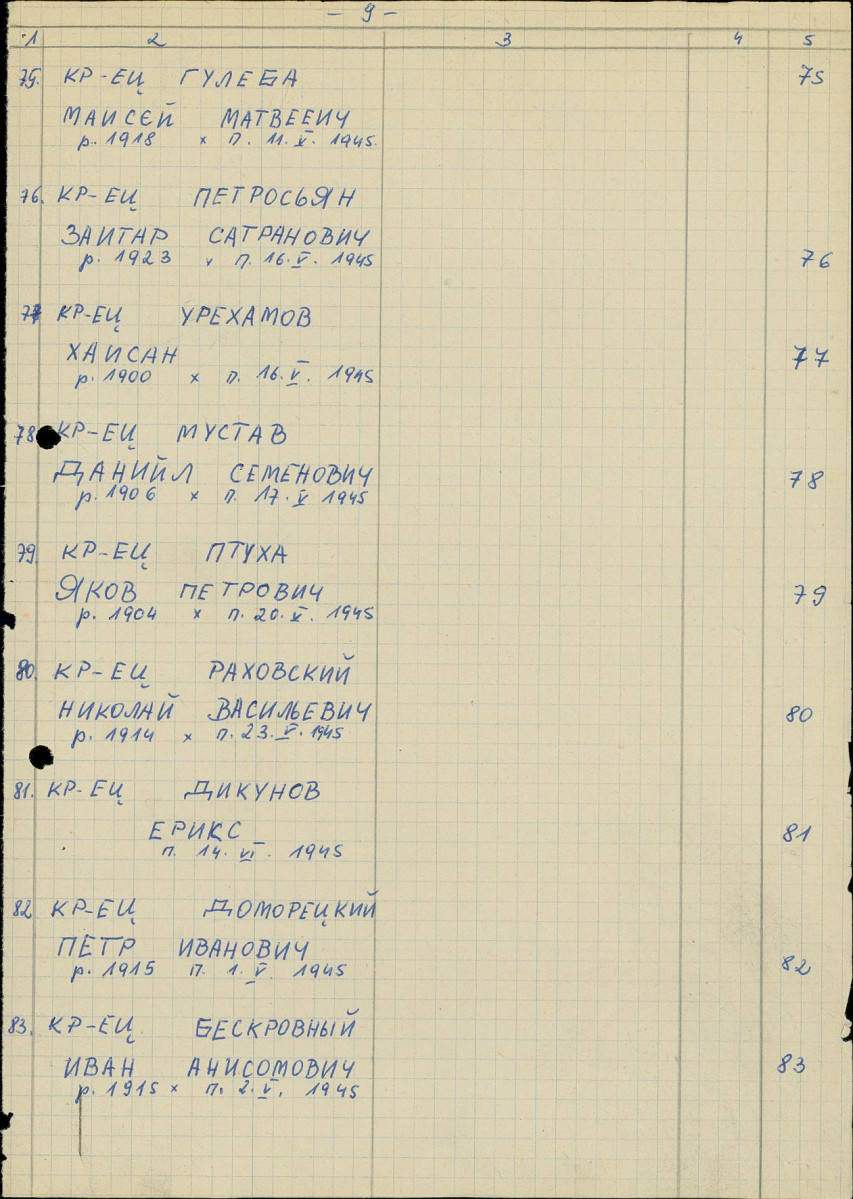 - 9 -
1 2 3 4 5
75. КР-ЕЦ ГУЛЕБА 75
МАИСЕЙ МАТВЕЕВИЧ
р. 1918 x п. 11. V. 1945.
76. КР-ЕЦ ПЕТРОСЬЯН
ЗАИТАР САТРАНОВИЧ
р. 1923 x п. 16. V. 1945 76
77 КР-ЕЦ УРЕХАМОВ
ХАИСАН 77
р. 1900 x п. 16. V. 1945
78 КР-ЕЦ МУСТАВ
ДАНИЙЛ СЕМЕНОВИЧ 78
р. 1906 x п. 17. V 1945
79. КР-ЕЦ ПТУХА
ЯКОВ ПЕТРОВИЧ 79
р. 1904 x п. 20. V. 1945
80. КР-ЕЦ РАХОВСКИЙ
НИКОЛАЙ ВАСИЛЬЕВИЧ 80
р. 1914 x п. 23. V. 1945
81. КР-ЕЦ ДИКУНОВ
ЕРИКС 81
п. 14. VI. 1945
82 КР-ЕЦ ДОМОРЕЦКИЙ
ПЕТР ИВАНОВИЧ 82
р. 1915 п. 1. V. 1945
83. КР-ЕЦ БЕСКРОВНЫЙ
ИВАН АНИСОМОВИЧ 83
р. 1915 x п. 2. V. 1945